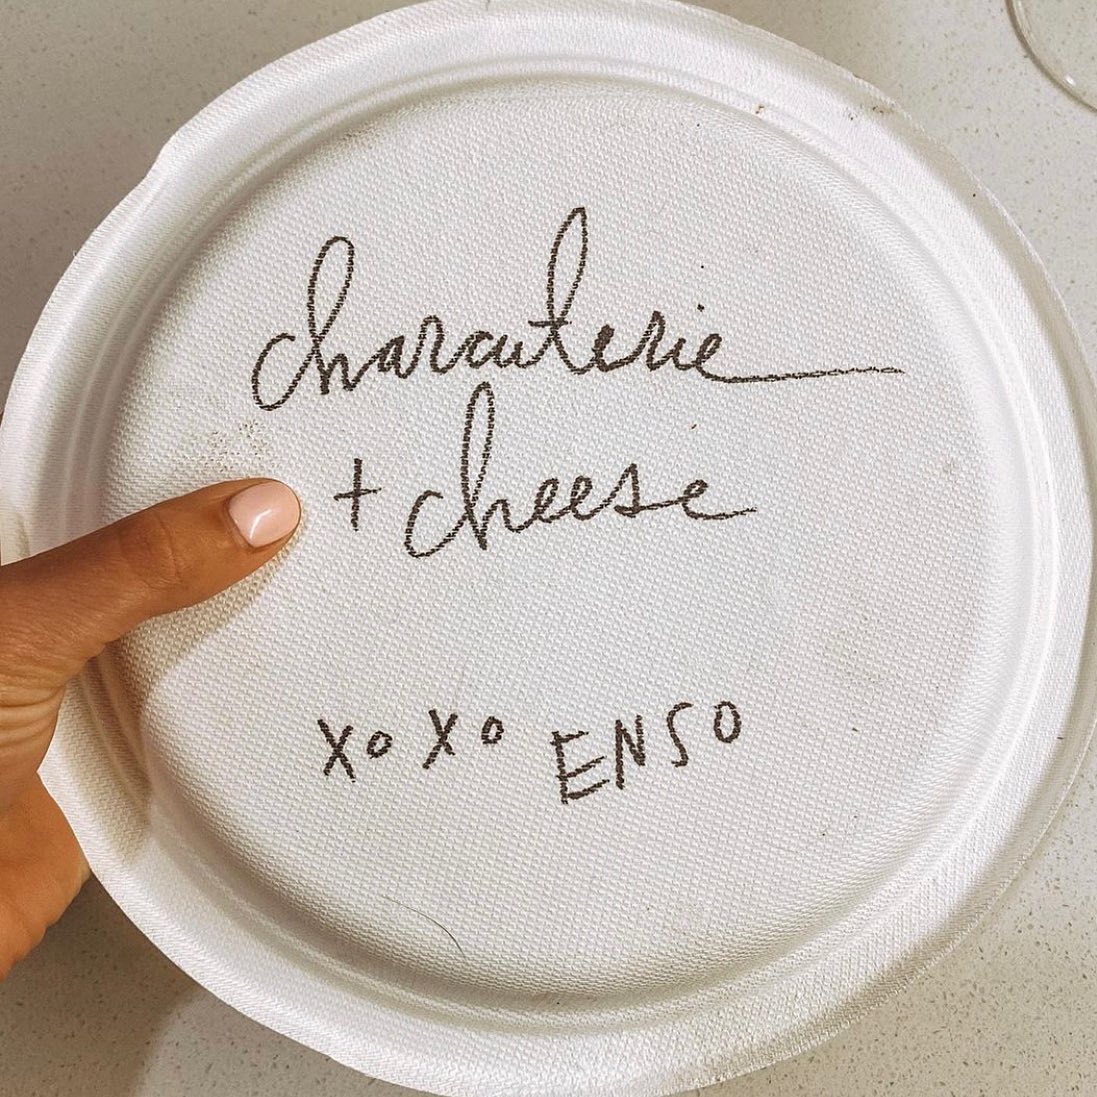 charcuterie
+ cheese
xoxo ENSO